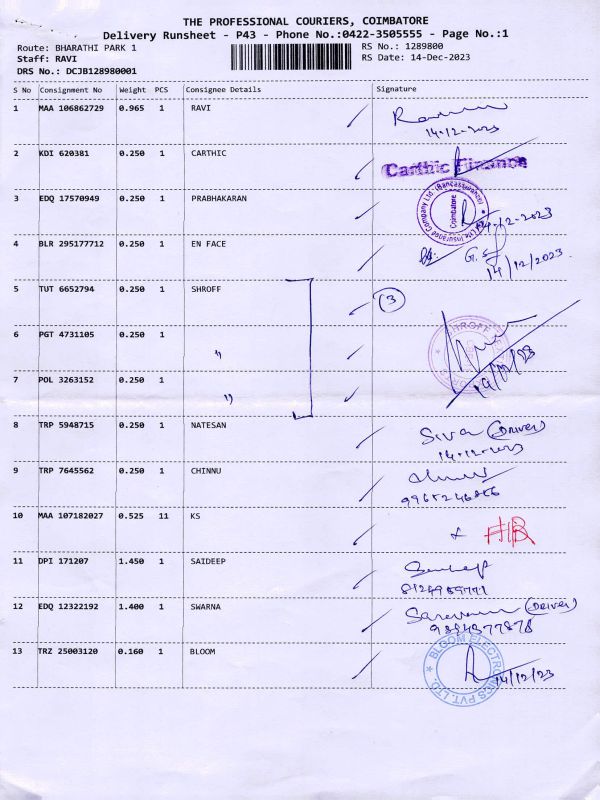 THE PROFESSIONAL COURIERS, COIMBATORE
Delivery Runsheet - P43 - Phone No.:0422-3505555 - Page No.:1
Route: BHARATHI PARK 1 RS No.: 1289800
Staff: RAVI RS Date: 14-Dec-2023
DRS No.: DCJB128980001
S No Consignment No Weight PCS Consignee Details Signature
1 MAA 106862729 0.965 1 RAVI
14-12-2023
2 KDI 620381 0.250 1 CARTHIC Carthic Finance
3 EDQ 17570949 0.250 1 PRABHAKARAN Life Insurance Company Ltd. (Bancassurance) Coimbatore
14-12-2023
4 BLR 295177712 0.250 1 EN FACE
14/12/2023
5 TUT 6652794 0.250 1 SHROFF 3
6 PGT 4731105 0.250 1 " SHROFF
7 POL 3263152 0.250 1 "
8 TRP 5948715 0.250 1 NATESAN Siva (Driver)
14-12-2023
9 TRP 7645562 0.250 1 CHINNU
10 MAA 107182027 0.525 11 KS
11 DPI 171207 1.450 1 SAIDEEP
12 EDQ 12322192 1.400 1 SWARNA (Driver)
9894377878
13 TRZ 25003120 0.160 1 BLOOM BLOOM ELECTRONICS PVT. LTD.
14/12/23